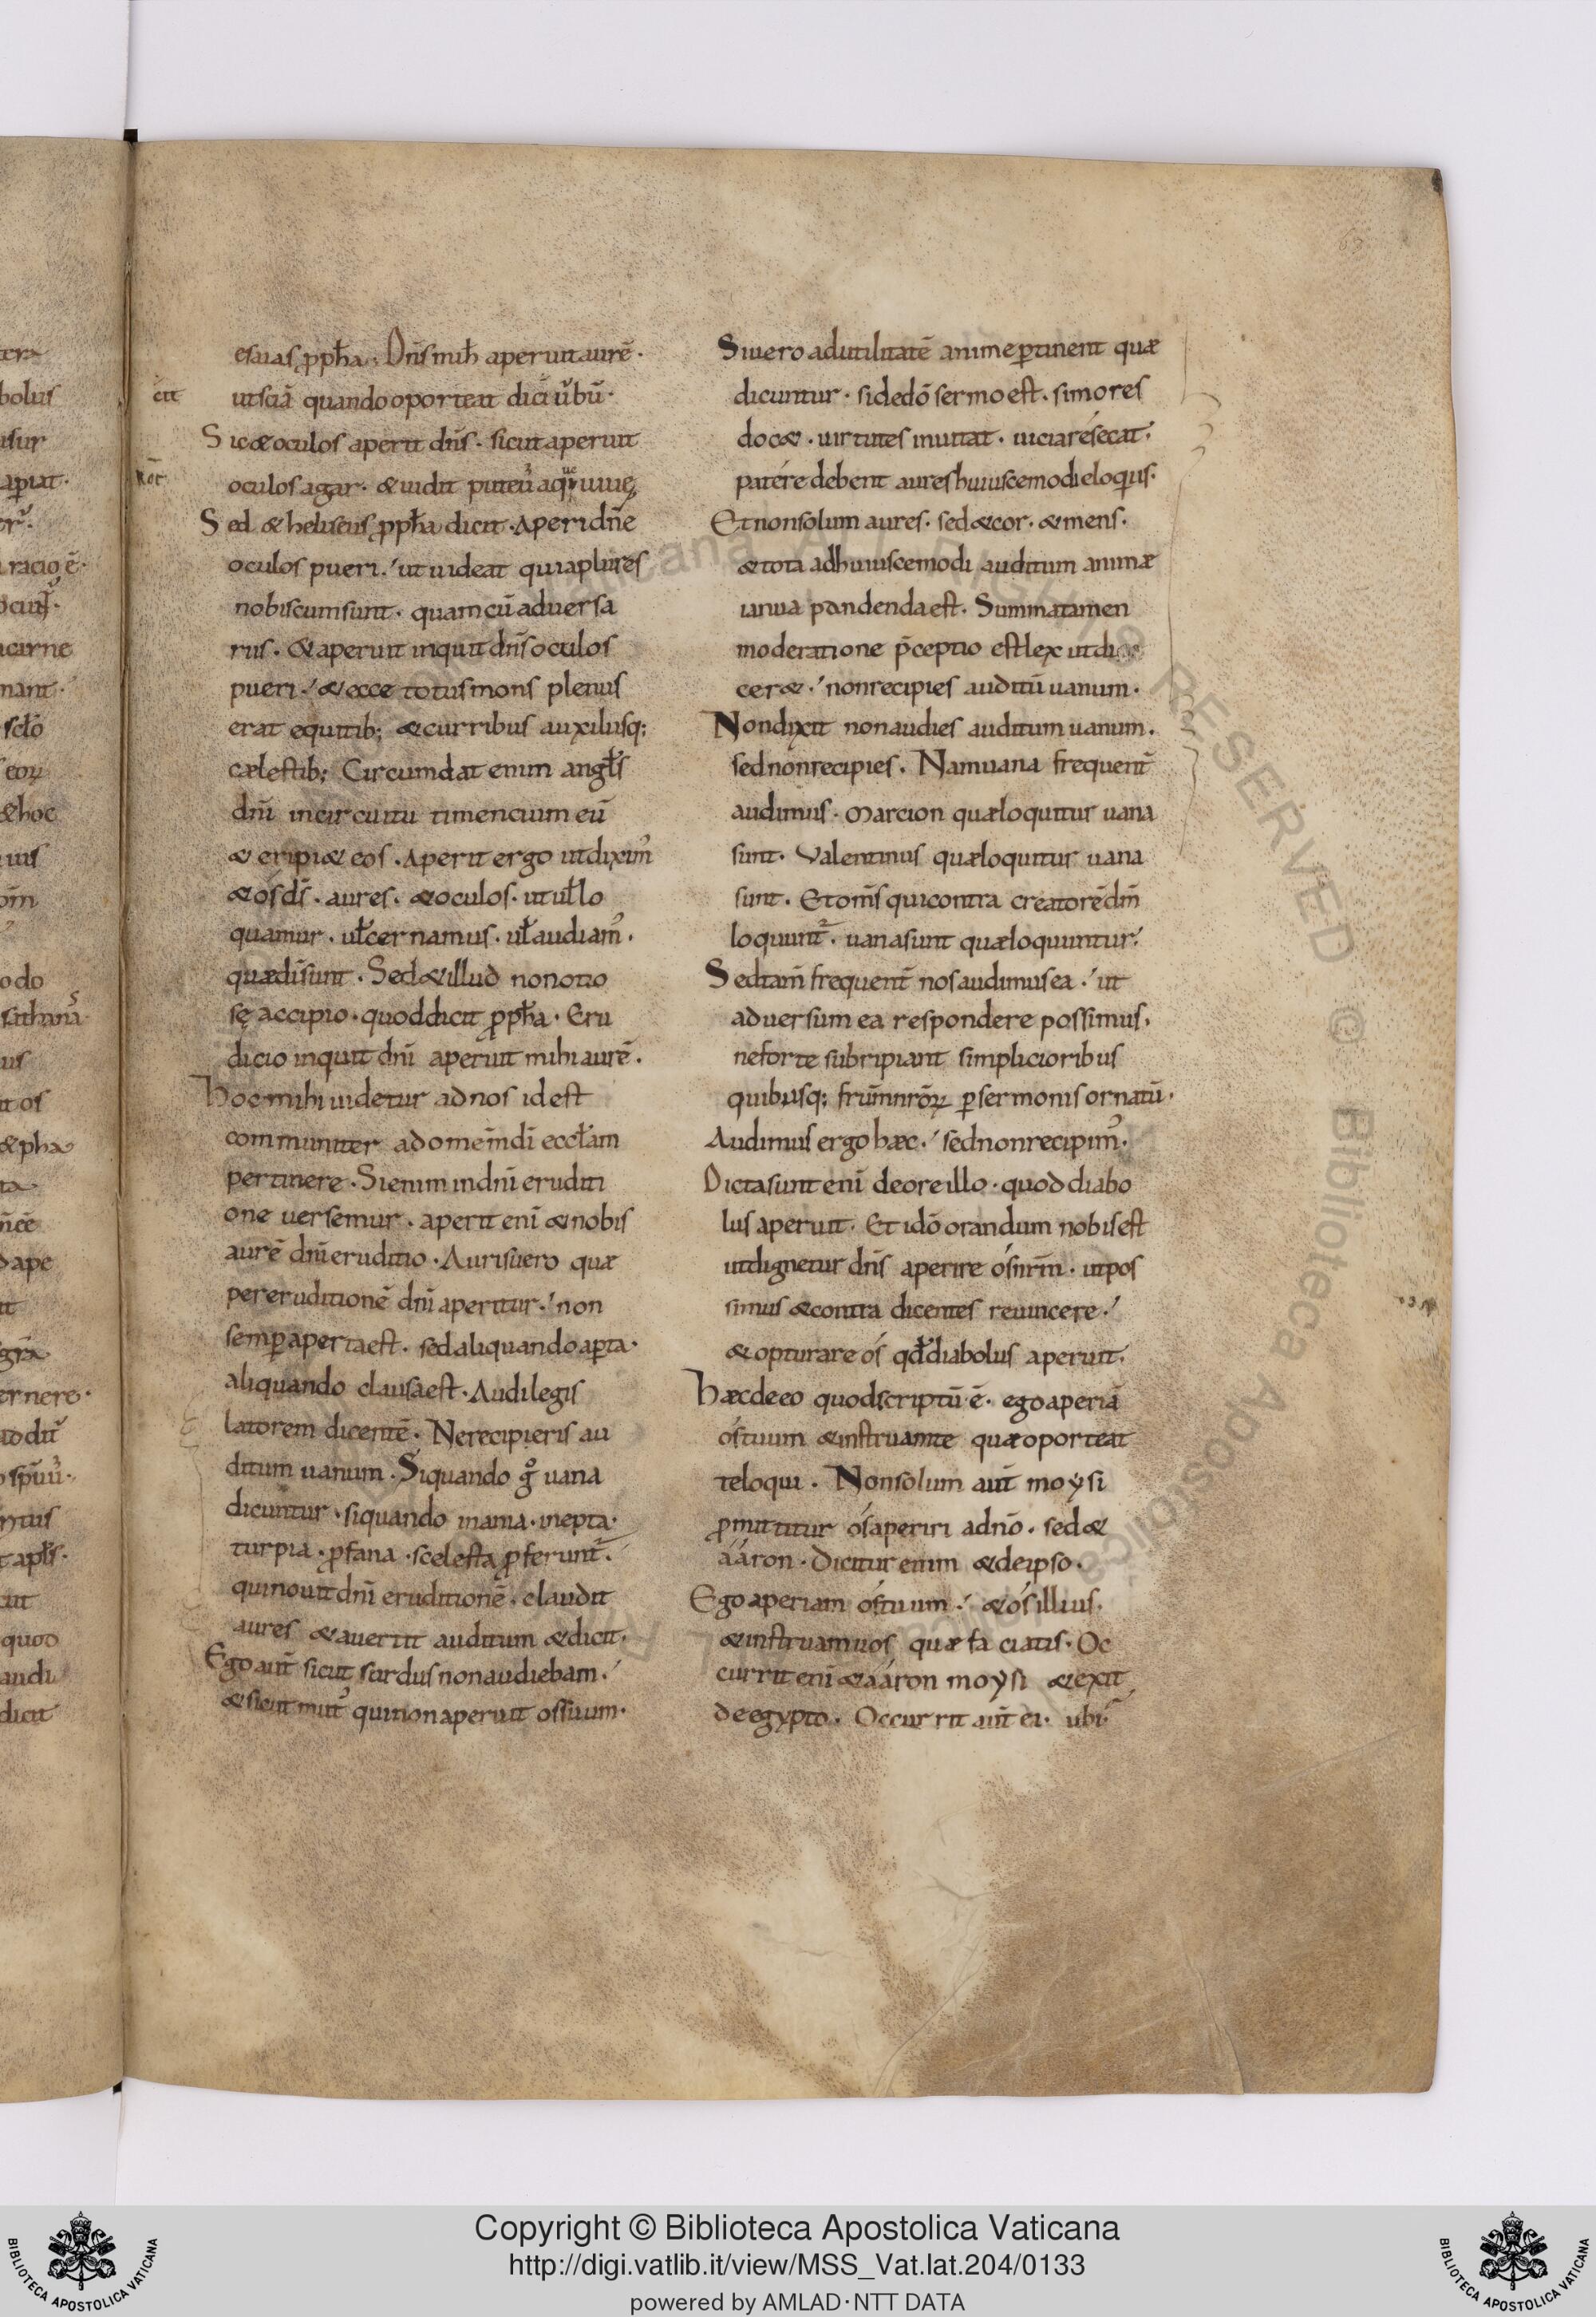 esaias ꝓph̄a. Dn̄s mih̄ aperuit aurē.
ut sciā quando oporteat dici ûbū.
Sic & oculos aperit dn̄s. sicut aperuit
oculos agar. & uidit puteū aquę uiuę
Sed & heliseus ꝓph̄a dicit. Aperi dn̄e
oculos pueri. ut uideat quia plures
nobiscum sunt. quam cū aduersa
riis. & aperuit inquit dn̄s oculos
pueri. & ecce totus mons plenus
erat equitib; & curribus auxiliisq;
cælestib; Circumdat enim angl̄s
dn̄i in circuitu timencium eū
& eripi& eos. Aperit ergo ut dixim᾿
& os dī. aures. & oculos. ut ul̄ lo
quamur. ul̄ cernamus. ul̄ audiam᾿.
quæ dī sunt. Sed & illud non otio
se accipio. quod dicit ꝓph̄a. Eru
dicio inquit dn̄i aperuit mihi aurē.
Hoc mihi uidetur ad nos id est
communiter ad omēm dī eccl̄am
pertinere. Si enim in dn̄i eruditi
one uersemur. aperit enī & nobis
aurē dn̄i eruditio. Auris uero quæ
per eruditionē dn̄i aperitur. non
semꝑ aperta est. sed aliquando aꝑta.
aliquando clausa est. Audi legis
latorem dicentē. Ne recipieris au
ditum uanum. Si quando g° uana
dicuntur. si quando inania. inepta.
turpia. ꝓfana. scelesta ꝓferunt̄.
qui nouit dn̄i eruditionē. claudit
aures & auertit auditum & dicit.
Ego aut̄ sicut surdus non audiebam.
& sicut mut᾿ qui non aperuit os suum.
Si uero ad utilitatē anime ꝑtinent quæ
dicuntur. si de dō sermo est. si mores
doc&. uirtutes inuitat. uicia resecat.
patére debent aures huiuscemodi eloquiis.
Et non solum aures. sed & cor. & mens.
& tota ad huiuscemodi auditum animæ
ianua pandenda est. Summa tamen
moderatione p̄ceptio est lex ut di
cer&. non recipies auditū uanum.
Non dixit non audies auditum uanum.
sed non recipies. Nam uana frequent̄
audimus. Marcion quæ loquitur uana
sunt. Valentinus quæ loquitur uana
sunt. Et om̄s qui contra creatorē dm̄
loquunt̄. uana sunt quæ loquuntur.
Sed tam̄ frequent̄ nos audimus ea. ut
aduersum ea respondere possimus.
ne forte subripiant simplicioribus
quibusq; frūm nrōꝝ ꝑ sermonis ornatū.
Audimus ergo hæc. sed non recipim᾿.
Dicta sunt enī de ore illo. quod diabo
lus aperuit. Et idō orandum nobis est
ut dignetur dn̄s aperire os nrm̄. ut pos
simus & contra dicentes reuincere.
& opturare os qđ diabolus aperuit.
Hæc de eo quod scriptū ē. ego aperiā
os tuum & instruam te quæ oporteat
te loqui. Non solum aut̄ moẏsi
ꝓmittitur os aperiri a dn̄o. sed &
aáron. Dicitur enim & de ipso.
Ego aperiam os tuum. & os illius.
& instruam uos quæ faciatis. Oc
currit enī & aáron moẏsi & exit
de egypto. Occurrit aut̄ ei. ubi
Copyright © Biblioteca Apostolica Vaticana
http://digi.vatlib.it/view/MSS_Vat.lat.204/0133
powered by AMLAD·NTT DATA